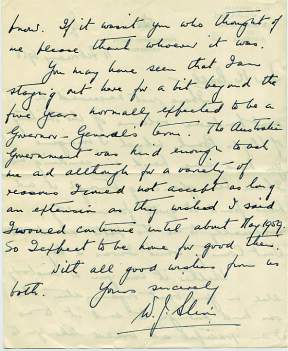 know. If it wasn't you who thought of
me please thank whoever it was.
You may have seen that I am
staying out here for a bit beyond the
five years normally expected to be a
Governor-General's term. The Australian
Government was kind enough to ask
me and although for a variety of
reasons I could not accept as long
an extension as they wished I said
I would continue until about May 1959.
So I expect to be home for good then.
With all good wishes from us
both.
Yours sincerely
W. J. Slim